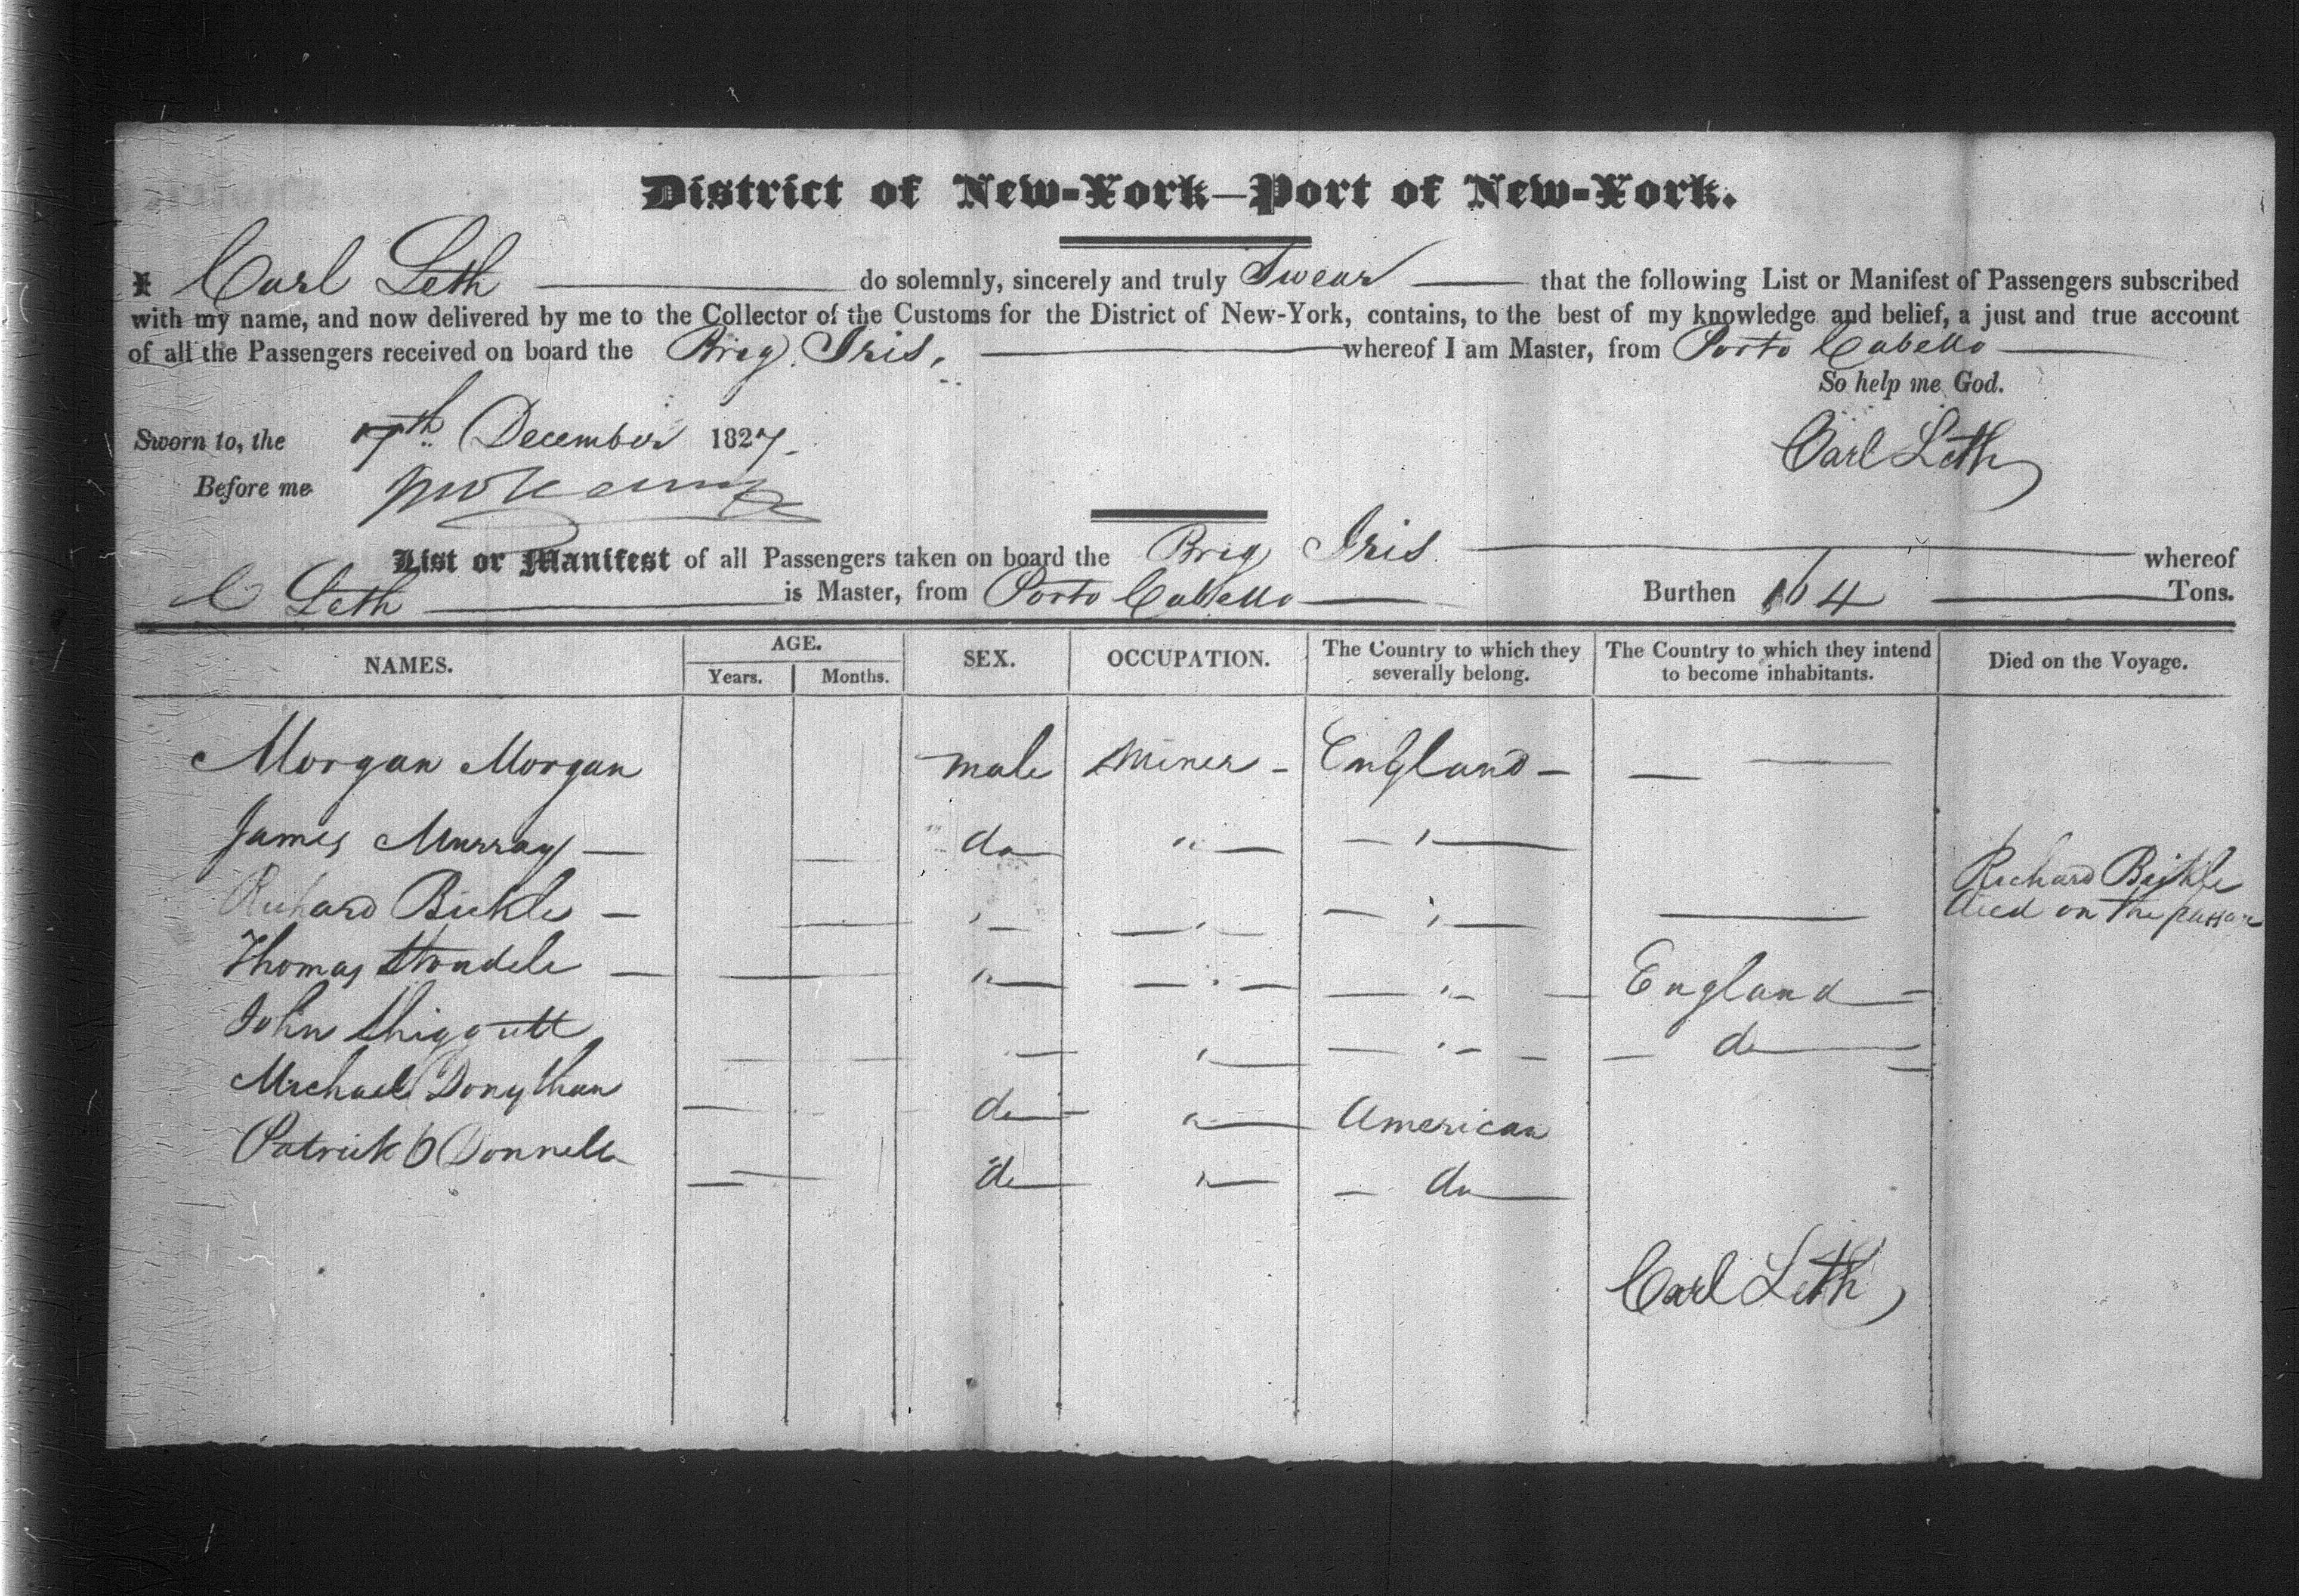 District of New-York—Port of New-York.
I Carl Leth do solemnly, sincerely and truly Swear that the following List or Manifest of Passengers subscribed
with my name, and now delivered by me to the Collector of the Customs for the District of New-York, contains, to the best of my knowledge and belief, a just and true account
of all the Passengers received on board the Brig Iris, whereof I am Master, from Porto Cabello
So help me God.
Sworn to, the 7th December 1827.
Carl Leth
Before me
List or Manifest of all Passengers taken on board the Brig Iris whereof
C Leth is Master, from Porto Cabello Burthen 164 Tons.
NAMES. AGE. Years. Months. SEX. OCCUPATION. The Country to which they severally belong. The Country to which they intend to become inhabitants. Died on the Voyage.
Morgan Morgan male Miner - England - —
James Murray — do " — — " —
Richard Bickle — " — — " — — " — — Richard Bickle
died on the
Thomas — " — — " — — " — England —
John — " — " — — " — — do —
Michael do — " — American
Patrick O Donnell do — " — — do —
Carl Leth